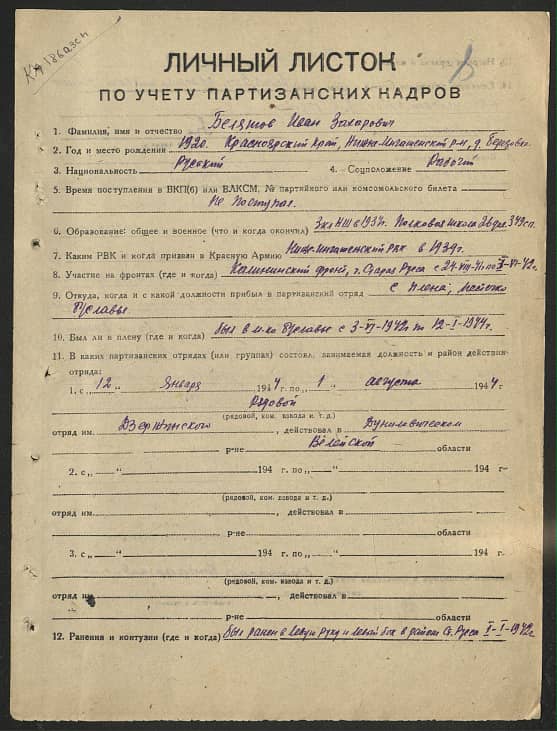 КА 186азсп
8
ЛИЧНЫЙ ЛИСТОК
ПО УЧЕТУ ПАРТИЗАНСКИХ КАДРОВ
1. Фамилия, имя и отчество Иван Захарович
2. Год и место рождения 1920. Красноярский Край,
3. Национальность Русский 4. Соцположение Рабочий
5. Время поступления в ВКП(б) или ВЛКСМ, № партийного или комсомольского билета
Не поступал.
6. Образование: общее и военное (что и когда окончил) в 1937г. Полковая школа
7. Каким РВК и когда призван в Красную Армию РВК в 1939г.
8. Участие на фронтах (где и когда) Калининский фронт, г. Старая Руса с 24-VII-41 по
9. Откуда, когда и с какой должности прибыл в партизанский отряд с Плена, местечко
Буславье
10. Был ли в плену (где и когда) был в м-ко Буславье с 3-VI-1942г по 12-I-1944г.
11. В каких партизанских отрядах (или группах) состоял, занимаемая должность и район действия
отряда:
1. с „ 12 „ Января 1944 г. по „ 1 „ августа 1944 г.
Рядовой
(рядовой, ком. взвода и т. д.)
отряд им. Дзержинского, действовал в Дуниловическом
р-не Вілейской области
2. с „ “ 194 г. по „ “ 194 г.
(рядовой, ком. взвода и т. д.)
отряд им. , действовал в
р-не области
3. с „ “ 194 г. по „ “ 194 г.
(рядовой, ком. взвода и т. д.)
отряд им. , действовал в
р-не области
12. Ранения и контузии (где и когда) был ранен в левую руку и левый бок в районе Ст. Руса 1942г.